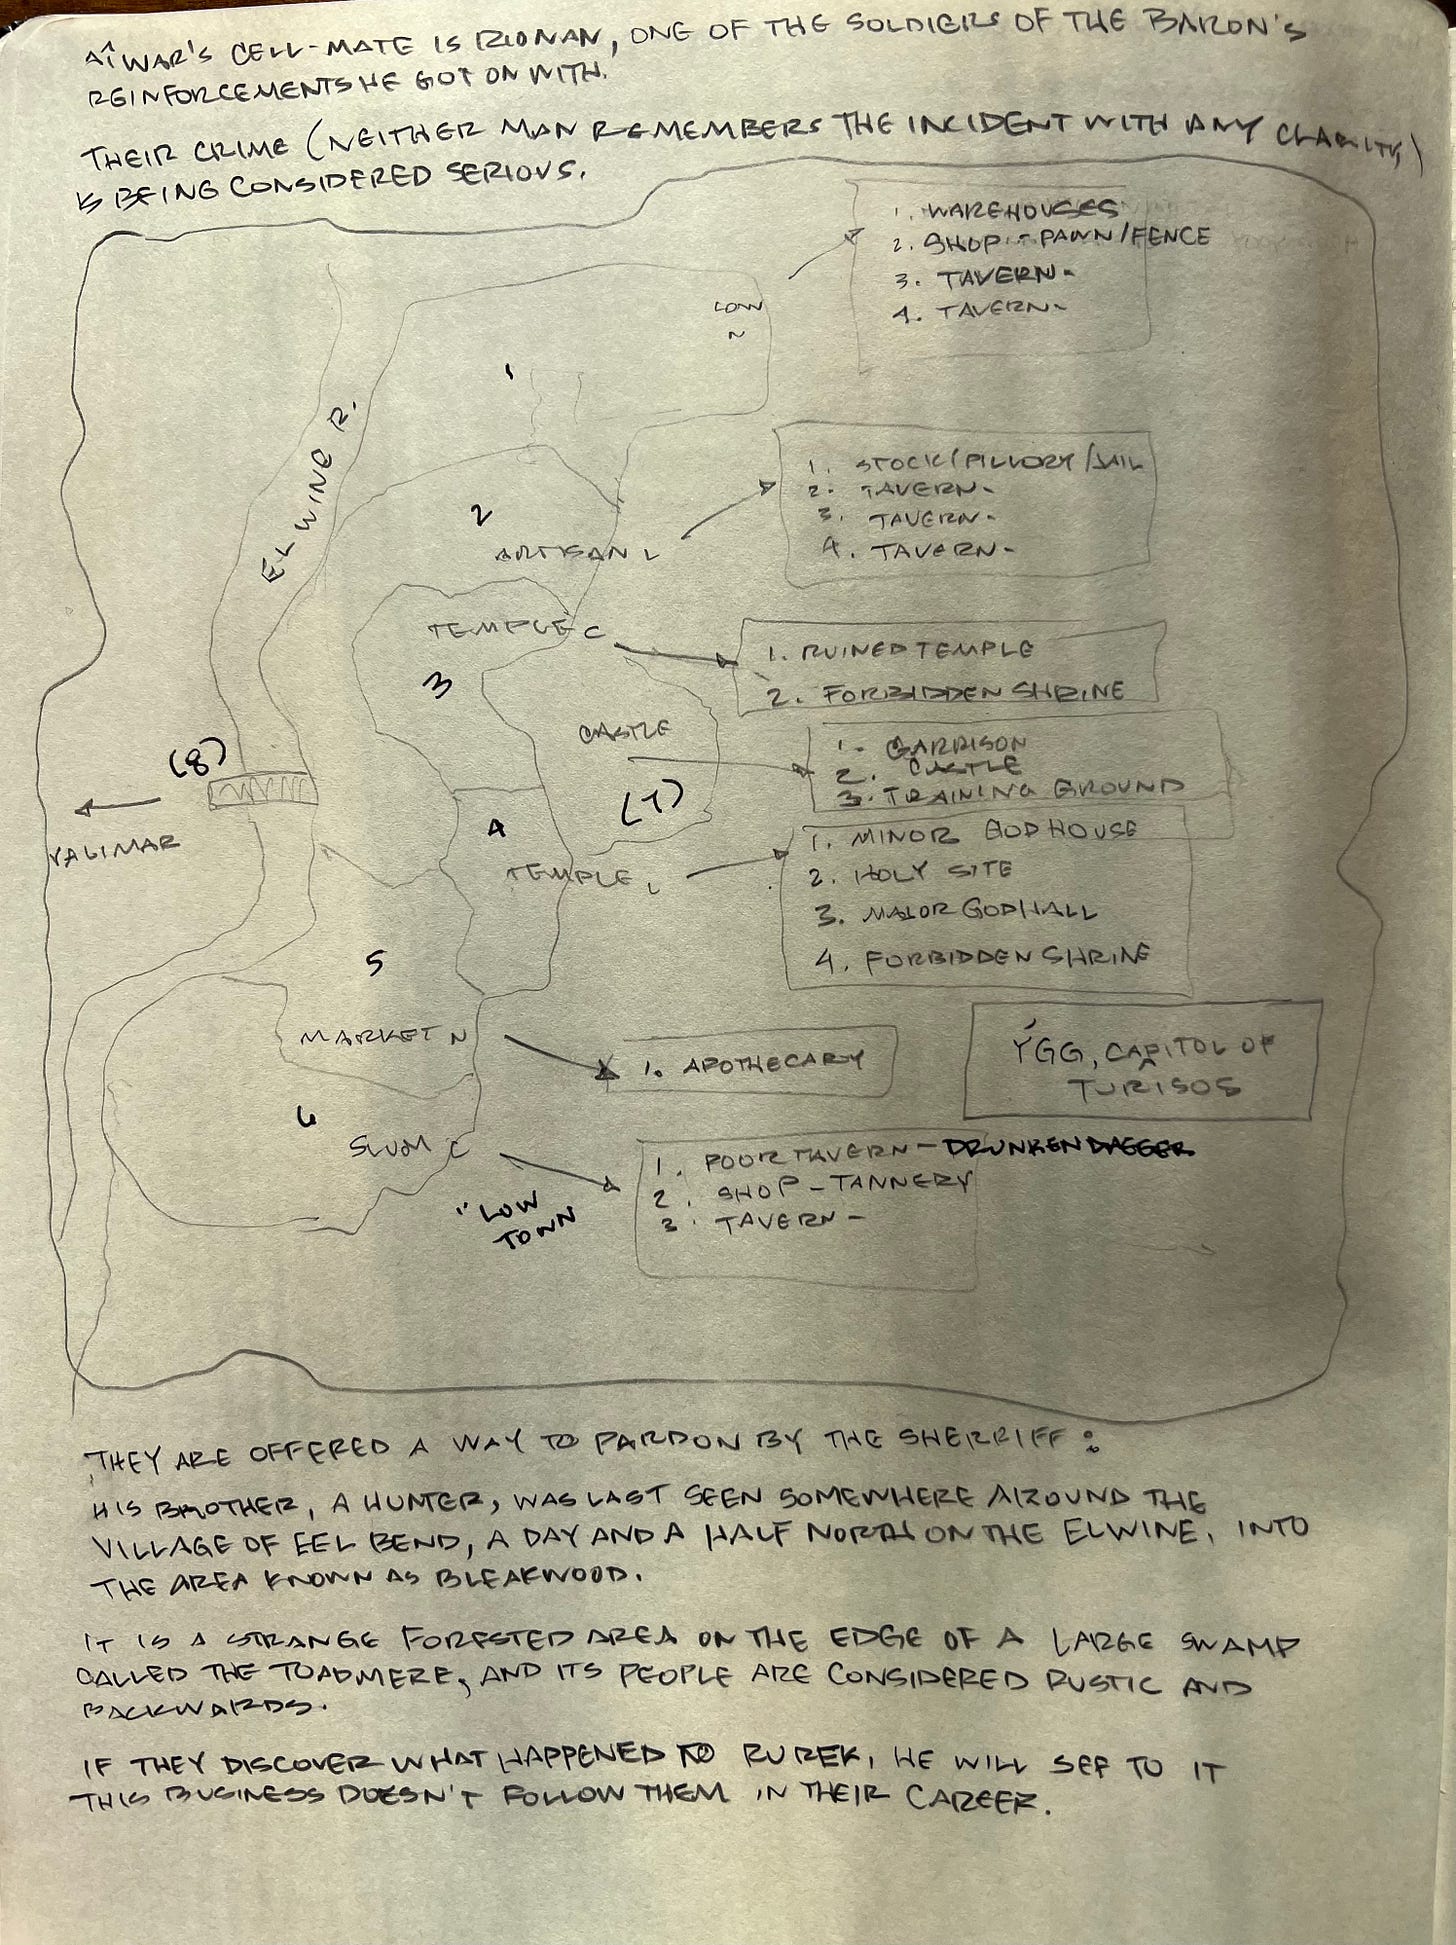 AÎWAR'S CELL-MATE IS RIONAN, ONE OF THE SOLDIERS OF THE BARON'S
REINFORCEMENTS HE GOT ON WITH.
THEIR CRIME (NEITHER MAN REMEMBERS THE INCIDENT WITH ANY CLARITY)
IS BEING CONSIDERED SERIOUS.
1. WAREHOUSES
2. SHOP - PAWN/FENCE
3. TAVERN -
4. TAVERN -
LOW
N
1
ELWINE R.
2
ARTISAN L
1. STOCK/PILLORY/JAIL
2. TAVERN -
3. TAVERN -
4. TAVERN -
TEMPLE C
3
1. RUINED TEMPLE
2. FORBIDDEN SHRINE
CASTLE
(7)
1. GARRISON
2. CASTLE
3. TRAINING GROUND
(8)
VALIMAR
4
TEMPLE L
1. MINOR GODHOUSE
2. HOLY SITE
3. MAJOR GODHALL
4. FORBIDDEN SHRINE
5
MARKET N
1. APOTHECARY
ÝGG, CAPITOL OF
TURISOS
6
SLUM C
"LOW
TOWN
1. POOR TAVERN - DRUNKEN DAGGER
2. SHOP - TANNERY
3. TAVERN -
THEY ARE OFFERED A WAY TO PARDON BY THE SHERRIFF:
HIS BROTHER, A HUNTER, WAS LAST SEEN SOMEWHERE AROUND THE
VILLAGE OF EEL BEND, A DAY AND A HALF NORTH ON THE ELWINE, INTO
THE AREA KNOWN AS BLEAKWOOD.
IT IS A STRANGE FORESTED AREA ON THE EDGE OF A LARGE SWAMP
CALLED THE TOADMERE, AND ITS PEOPLE ARE CONSIDERED RUSTIC AND
BACKWARDS.
IF THEY DISCOVER WHAT HAPPENED TO RUREK, HE WILL SEE TO IT
THIS BUSINESS DOESN'T FOLLOW THEM IN THEIR CAREER.